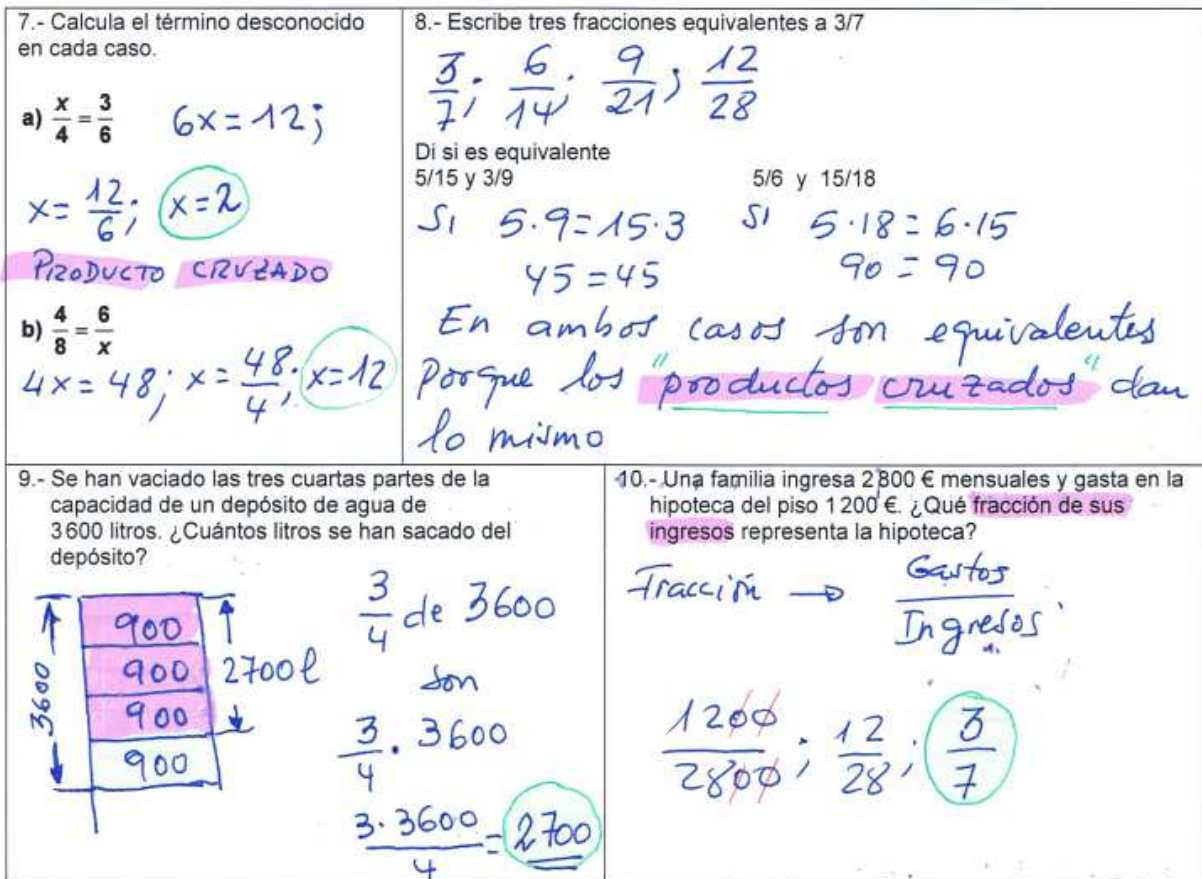 7.- Calcula el término desconocido
en cada caso.
a) x/4 = 3/6   6x = 12;
x = 12/6; x = 2
PRODUCTO CRUZADO
b) 4/8 = 6/x
4x = 48; x = 48/4; x = 12
8.- Escribe tres fracciones equivalentes a 3/7
3/7; 6/14; 9/21; 12/28
Di si es equivalente
5/15 y 3/9   5/6 y 15/18
SI 5·9 = 15·3   SI 5·18 = 6·15
45 = 45   90 = 90
En ambos casos son equivalentes
porque los "productos cruzados" dan
lo mismo
9.- Se han vaciado las tres cuartas partes de la
capacidad de un depósito de agua de
3600 litros. ¿Cuántos litros se han sacado del
depósito?
3600
900
900
900
900
2700 l
3/4 de 3600
son
3/4 · 3600
3·3600/4 = 2700
10.- Una familia ingresa 2800 € mensuales y gasta en la
hipoteca del piso 1200 €. ¿Qué fracción de sus
ingresos representa la hipoteca?
Fracción → Gastos/Ingresos
1200/2800; 12/28; 3/7